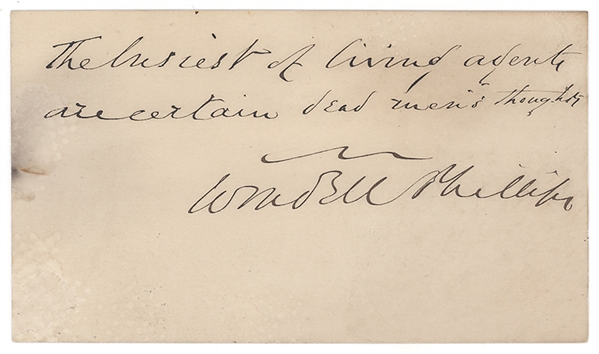 The busiest of living agents
are certain dead men's thoughts
Wendell Phillips